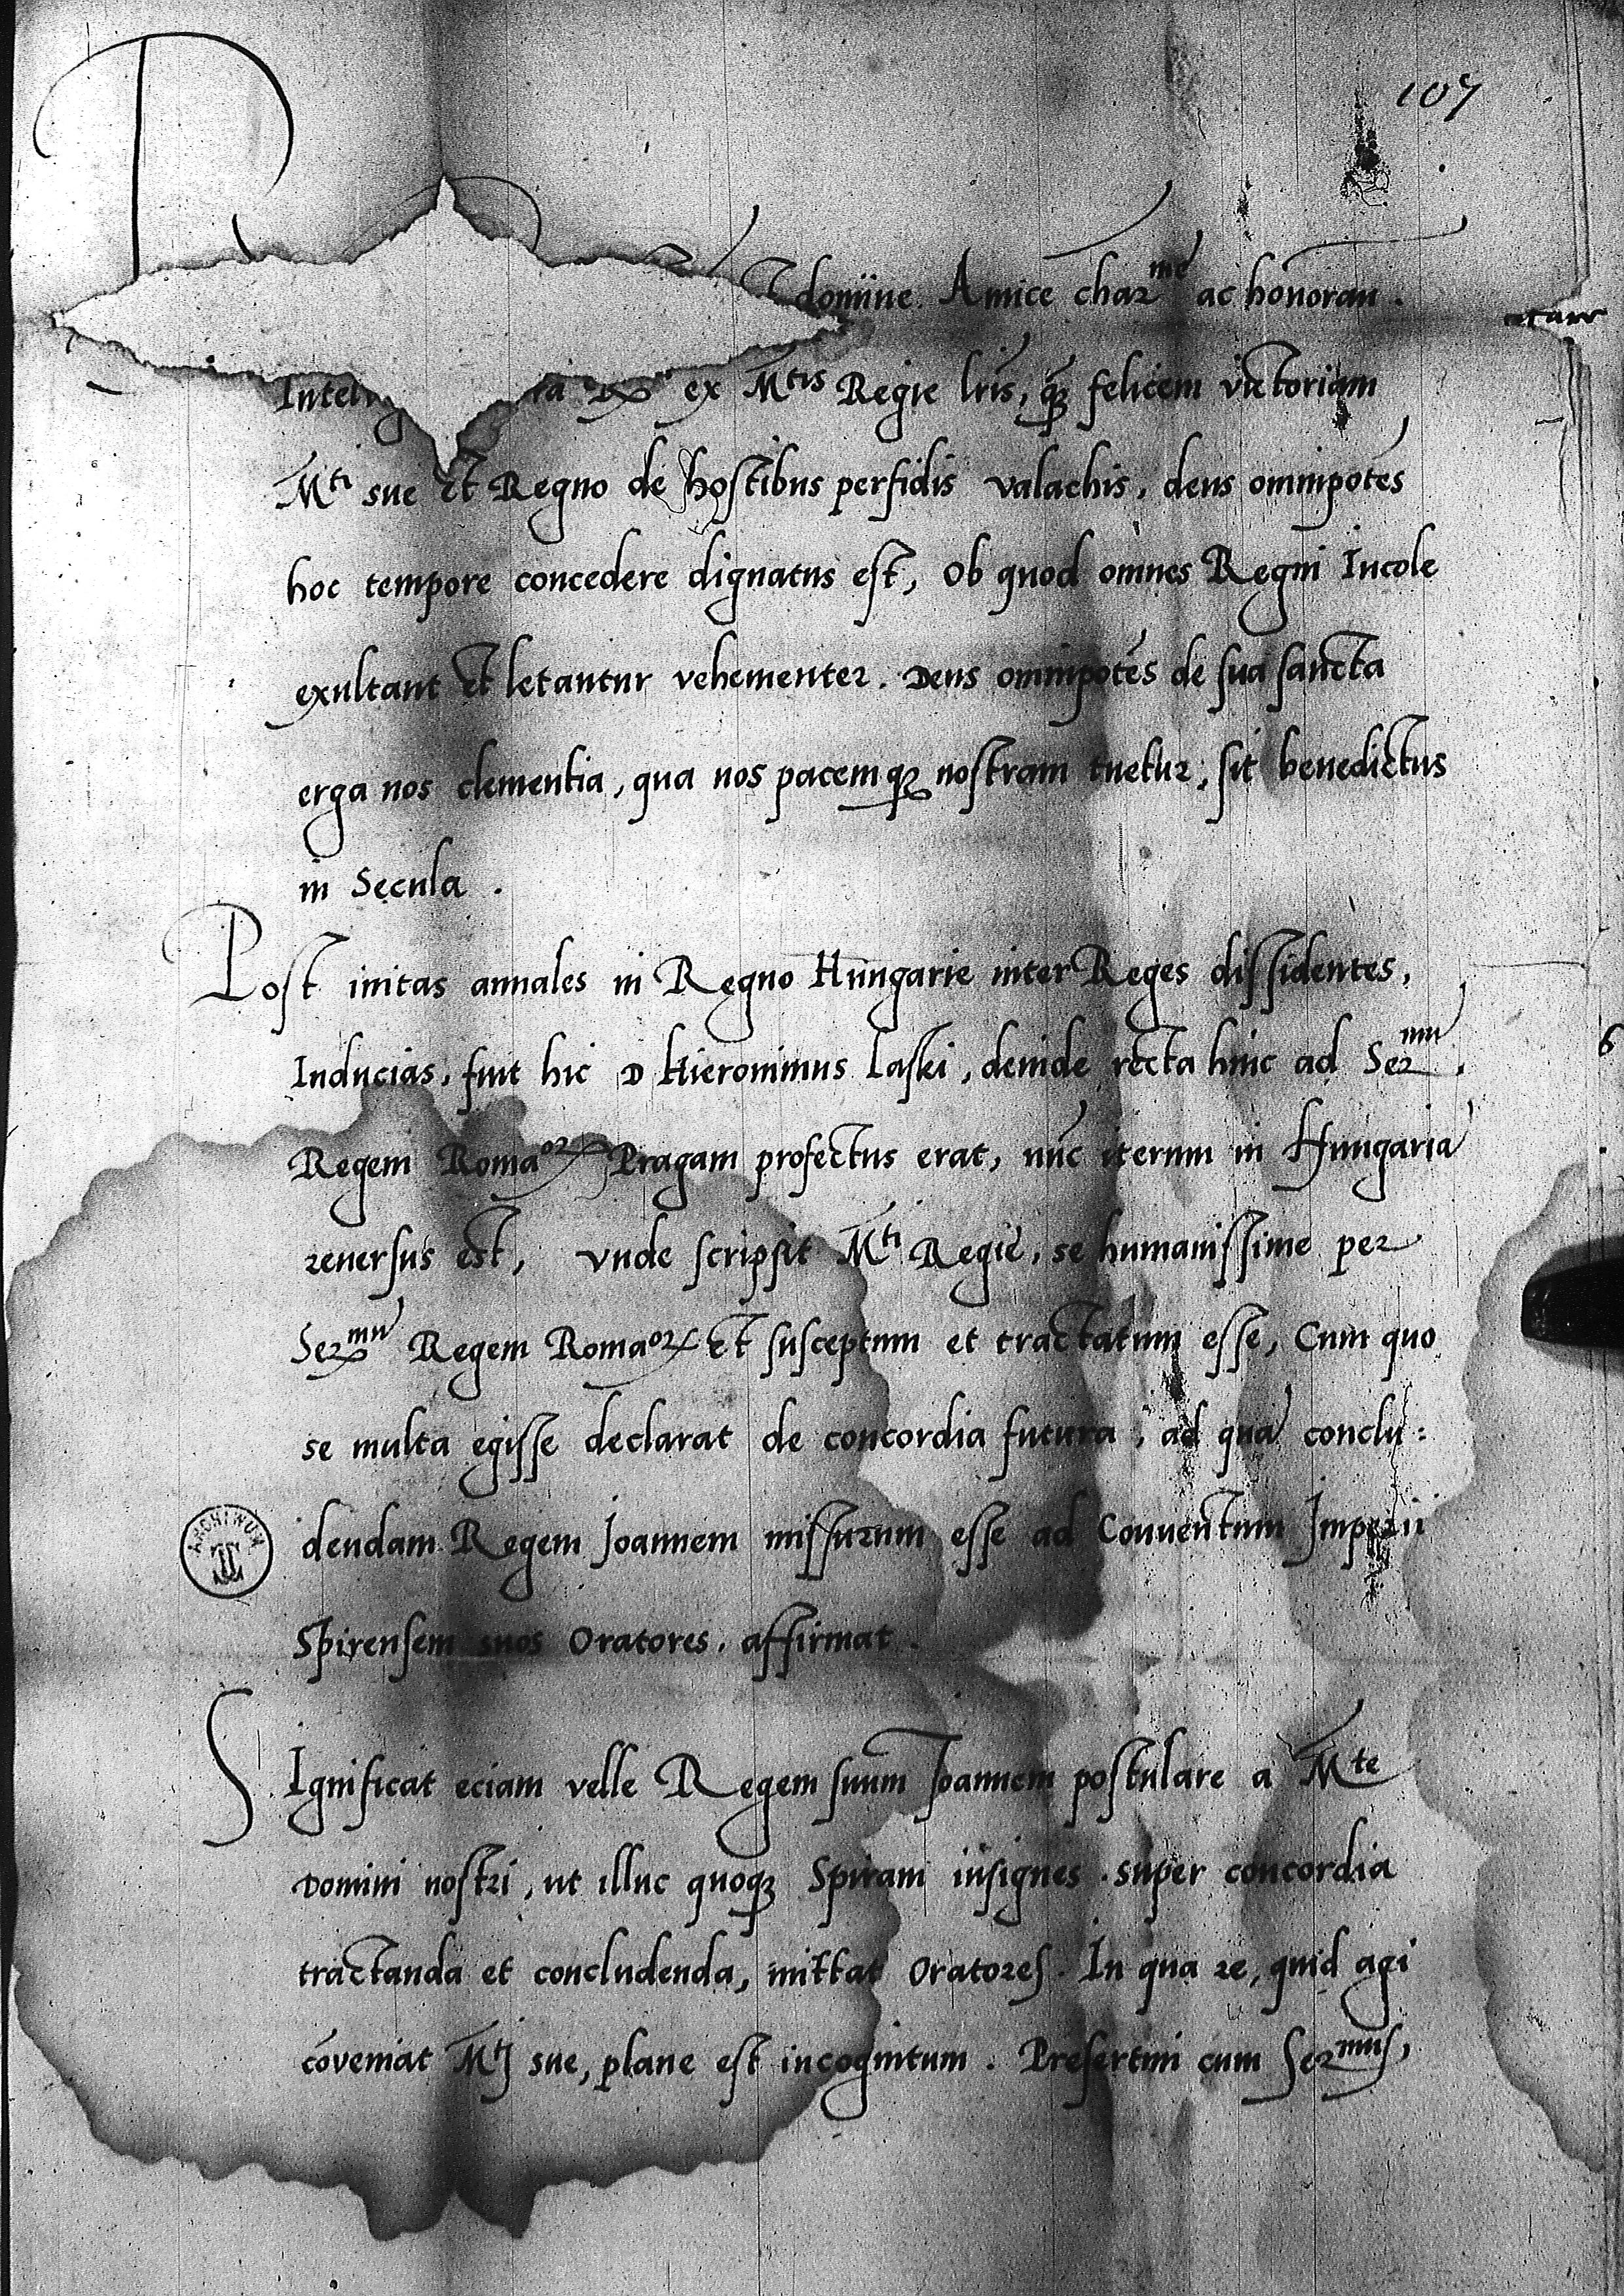 107
R domine. Amice char^me ac honoran.
ex M^tis Regie lris, q̃ꝫ felicem victoriam
M^ti sue et Regno de hostibus perfidis valachis, deus omnipotẽs
hoc tempore concedere dignatus est, Ob quod omnes Regni Incole
exultant et letantur vehementer. Deus omnipotẽs de sua sancta
erga nos clementia, qua nos pacemqꝫ nostram tuetur, sit benedictus
in Secula.
Post initas annales in Regno Hungarie inter Reges dissidentes,
Inducias, fuit hic D Hieronimus Laski, deinde recta hinc ad Ser^mu.
Regem Roma^orꝝ Pragam profectus erat, nũc iterum in Hungariã
reversus est, vnde scripsit M^ti Regie, se humanissime per
Ser^mu Regem Roma^orꝝ Et susceptum et tractatum esse, Cum quo
se multa egisse declarat de concordia futura, ad quã conclu:
dendam Regem Joannem missurum esse ad Conventum Imperii
ARCHIWUM
Spirensem suos Oratores. affirmat.
SIgnificat eciam velle Regem suum Joannem postulare a M^te
Domini nostri, ut illuc quoqꝫ Spiram insignes. super concordia
tractanda et concludenda, mittat Oratores. In qua re, quid agi
cõveniat M^tj sue, plane est incognitum. Presertim cum Ser^mus,